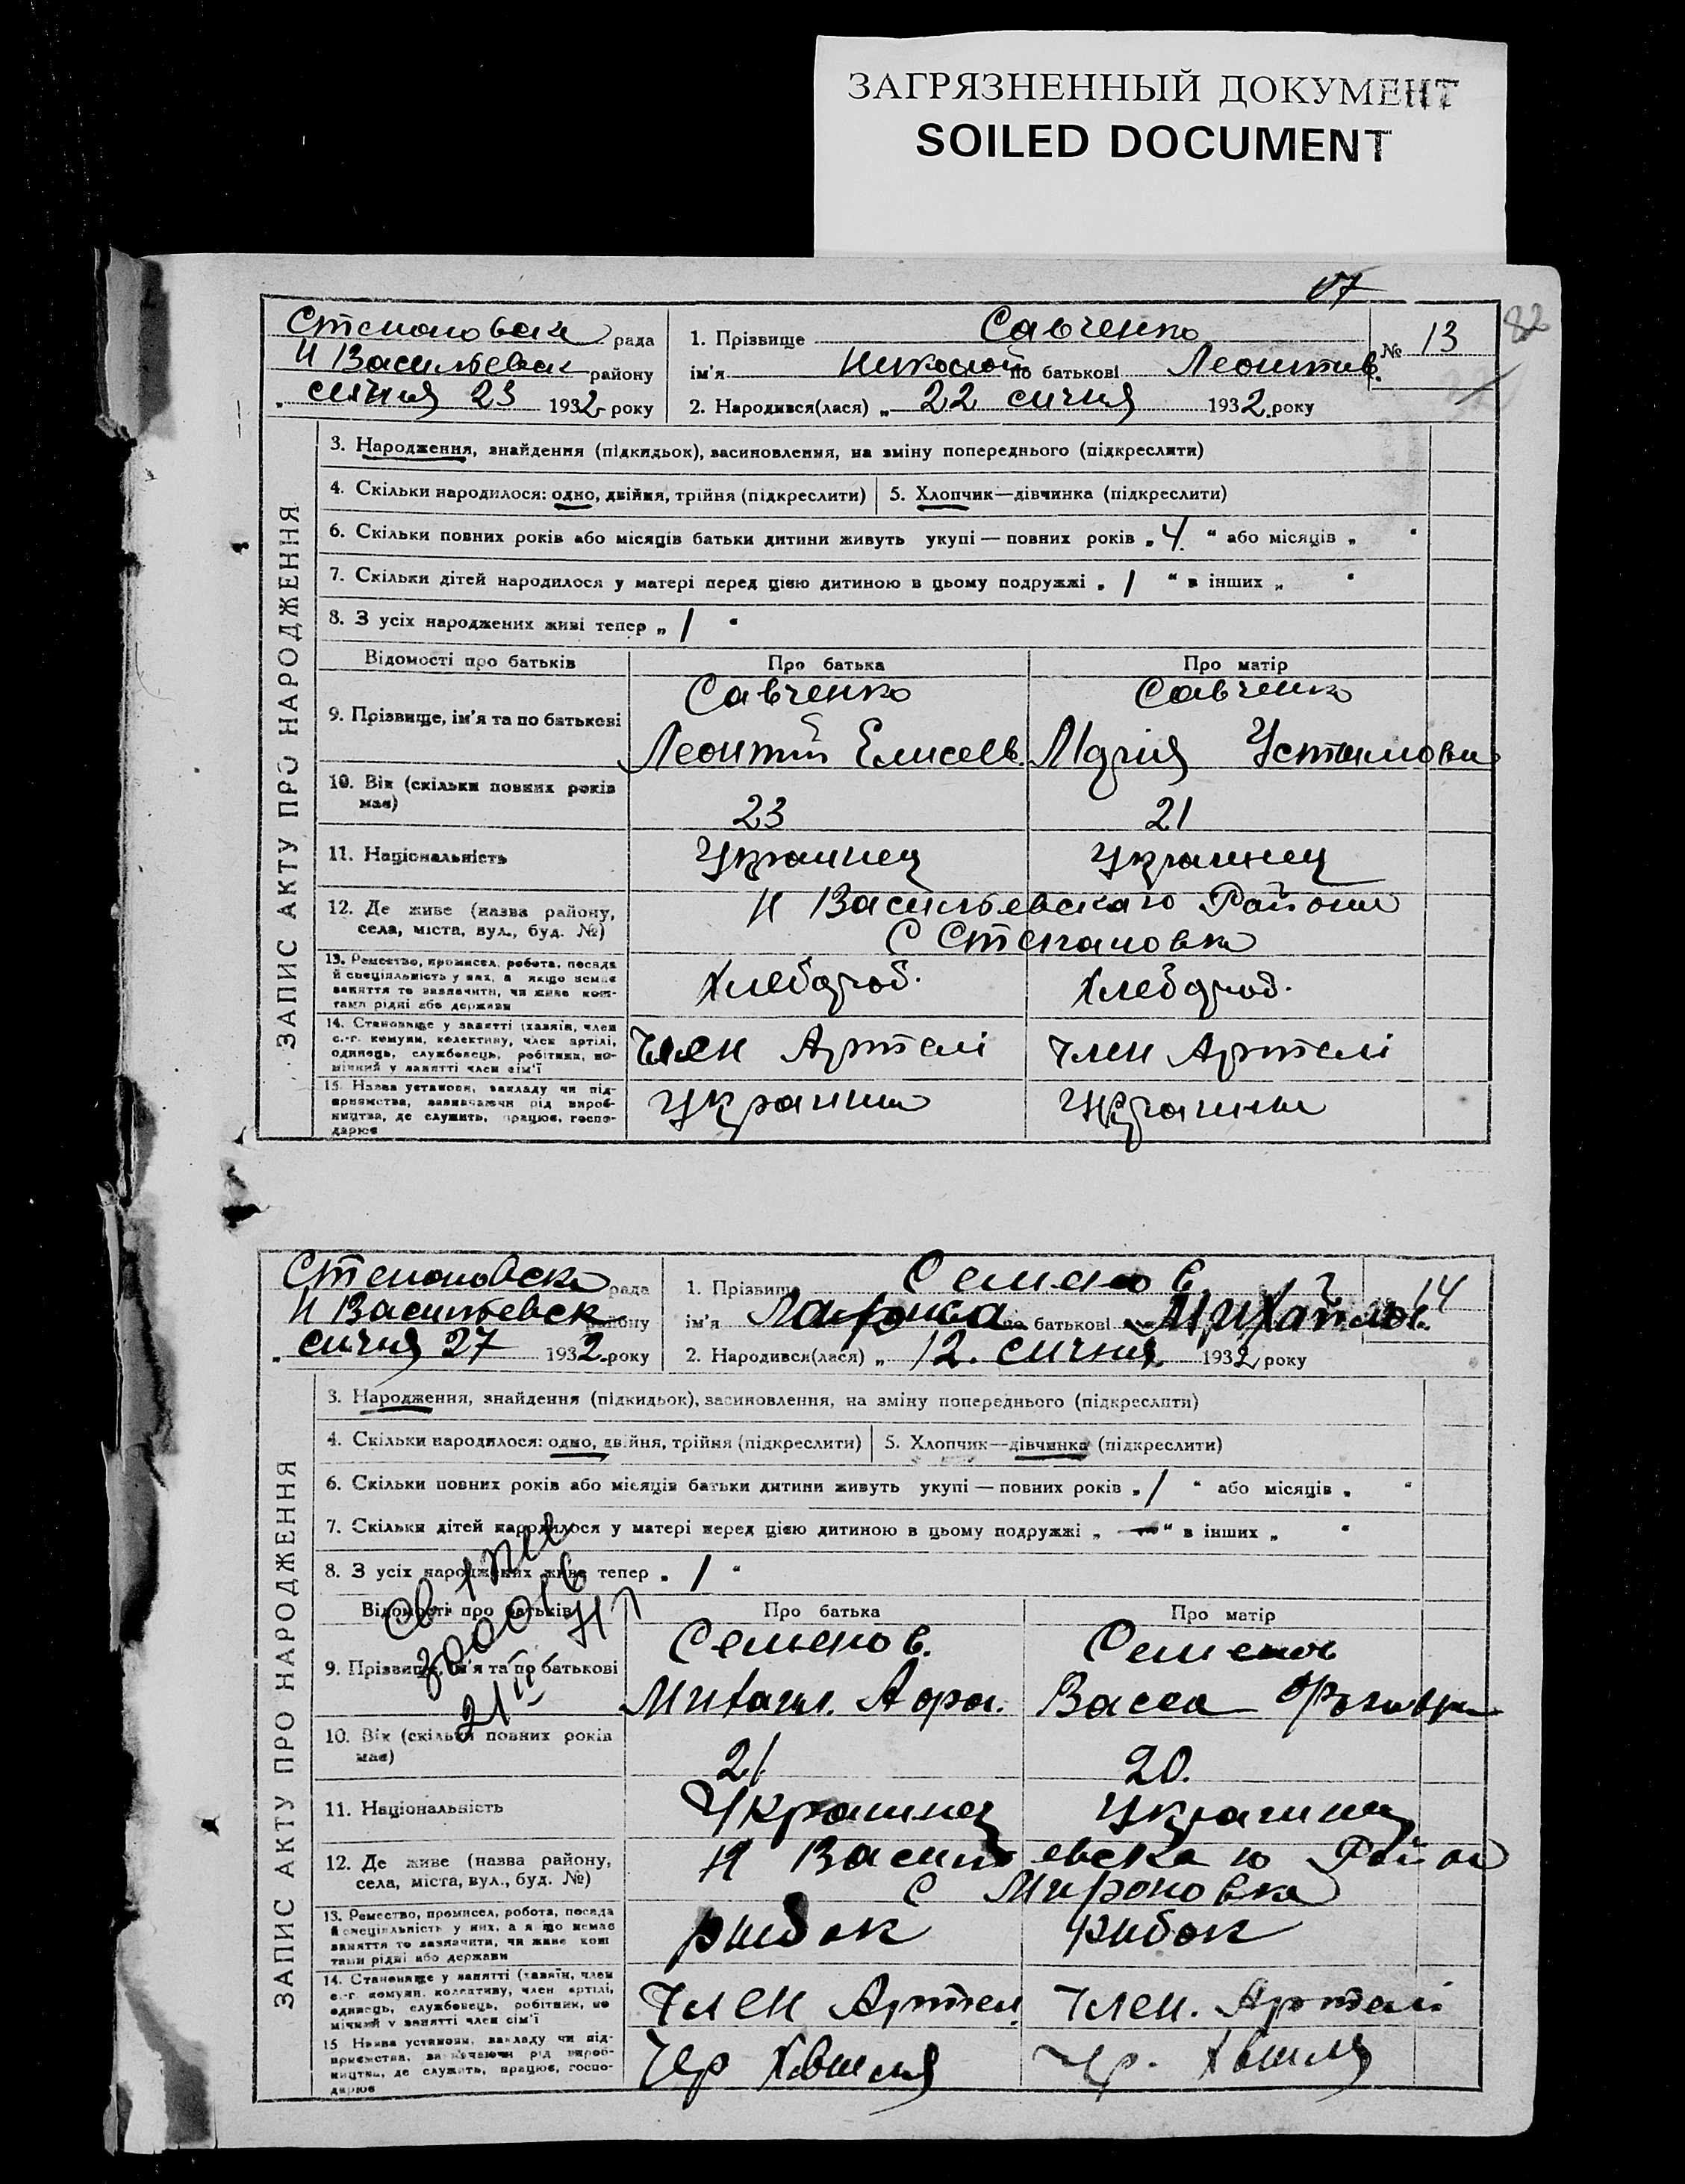 ЗАГРЯЗНЕННЫЙ ДОКУМЕНТ
SOILED DOCUMENT
82
Степановська рада
Н Васильевськ району
„ сичня 23 1932 року
1. Прізвище Савченко
№ 13
ім'я Николай по батькові Леонтив.
2. Народився(лася) „ 22 сичня 1932 року
ЗАПИС АКТУ ПРО НАРОДЖЕННЯ
3. Народження, знайдення (підкидьок), засиновлення, на зміну попереднього (підкреслити)
4. Скільки народилося: одно, двійня, трійня (підкреслити) 5. Хлопчик—дівчинка (підкреслити)
6. Скільки повних років або місяців батьки дитини живуть укупі — повних років „ 4 “ або місяців „ “
7. Скільки дітей народилося у матері перед цією дитиною в цьому подружжі „ 1 “ в інших „ “
8. З усіх народжених живі тепер „ 1 “
Відомості про батьків Про батька Про матір
9. Прізвище, ім'я та по батькові
Савченко Савченко
Леонтий Елисеев. Мария Устимовна
10. Вік (скільки повних років має)
23 21
11. Національність Украинец Украинец
12. Де живе (назва району, села, міста, вул., буд. №)
Н Васильевскаго Района
С Степановка
13. Ремество, промисел, робота, посада й спеціяльність у них, а якщо немає заняття то зазначити, чи живе коштами рідні або держави
Хлебороб. Хлебороб.
14. Становище у занятті (хазяїн, член с.-г. комуни, колективу, член артілі, одинець, службовець, робітник, помічний у занятті член сім'ї
Член Артелі Член Артелі
15. Назва установи, закладу чи підприємства, зазначаючи рід виробництва, де служить, працює, господарює
Украина Украина
Степановська рада
Н Васильевськ району
„ сичня 27 1932 року
1. Прізвище Семенов
14
ім'я по батькові Михайлов.
2. Народився(лася) „ 12. сичня 1932 року
ЗАПИС АКТУ ПРО НАРОДЖЕННЯ
3. Народження, знайдення (підкидьок), засиновлення, на зміну попереднього (підкреслити)
4. Скільки народилося: одно, двійня, трійня (підкреслити) 5. Хлопчик—дівчинка (підкреслити)
6. Скільки повних років або місяців батьки дитини живуть укупі — повних років „ 1 “ або місяців „ “
7. Скільки дітей народилося у матері перед цією дитиною в цьому подружжі „ — “ в інших „ “
8. З усіх народжених живі тепер „ 1 “
Відомості про батьків Про батька Про матір
9. Прізвище, ім'я та по батькові
Семенов. Семенов
Михаил. Васса
10. Вік (скільки повних років має)
21 20.
11. Національність Украинец Украинец
12. Де живе (назва району, села, міста, вул., буд. №)
Н Васильевскаго Район
С Мироновка
13. Ремество, промисел, робота, посада й спеціяльність у них, а якщо немає заняття то зазначити, чи живе коштами рідні або держави
рибак рибак
14. Становище у занятті (хазяїн, член с.-г. комуни, колективу, член артілі, одинець, службовець, робітник, помічний у занятті член сім'ї
Член Артел. Член. Артелі
15 Назва установи, закладу чи підприємства, зазначаючи рід виробництва, де служить, працює, господарює
Чер Хвиля Чр. Хвиля